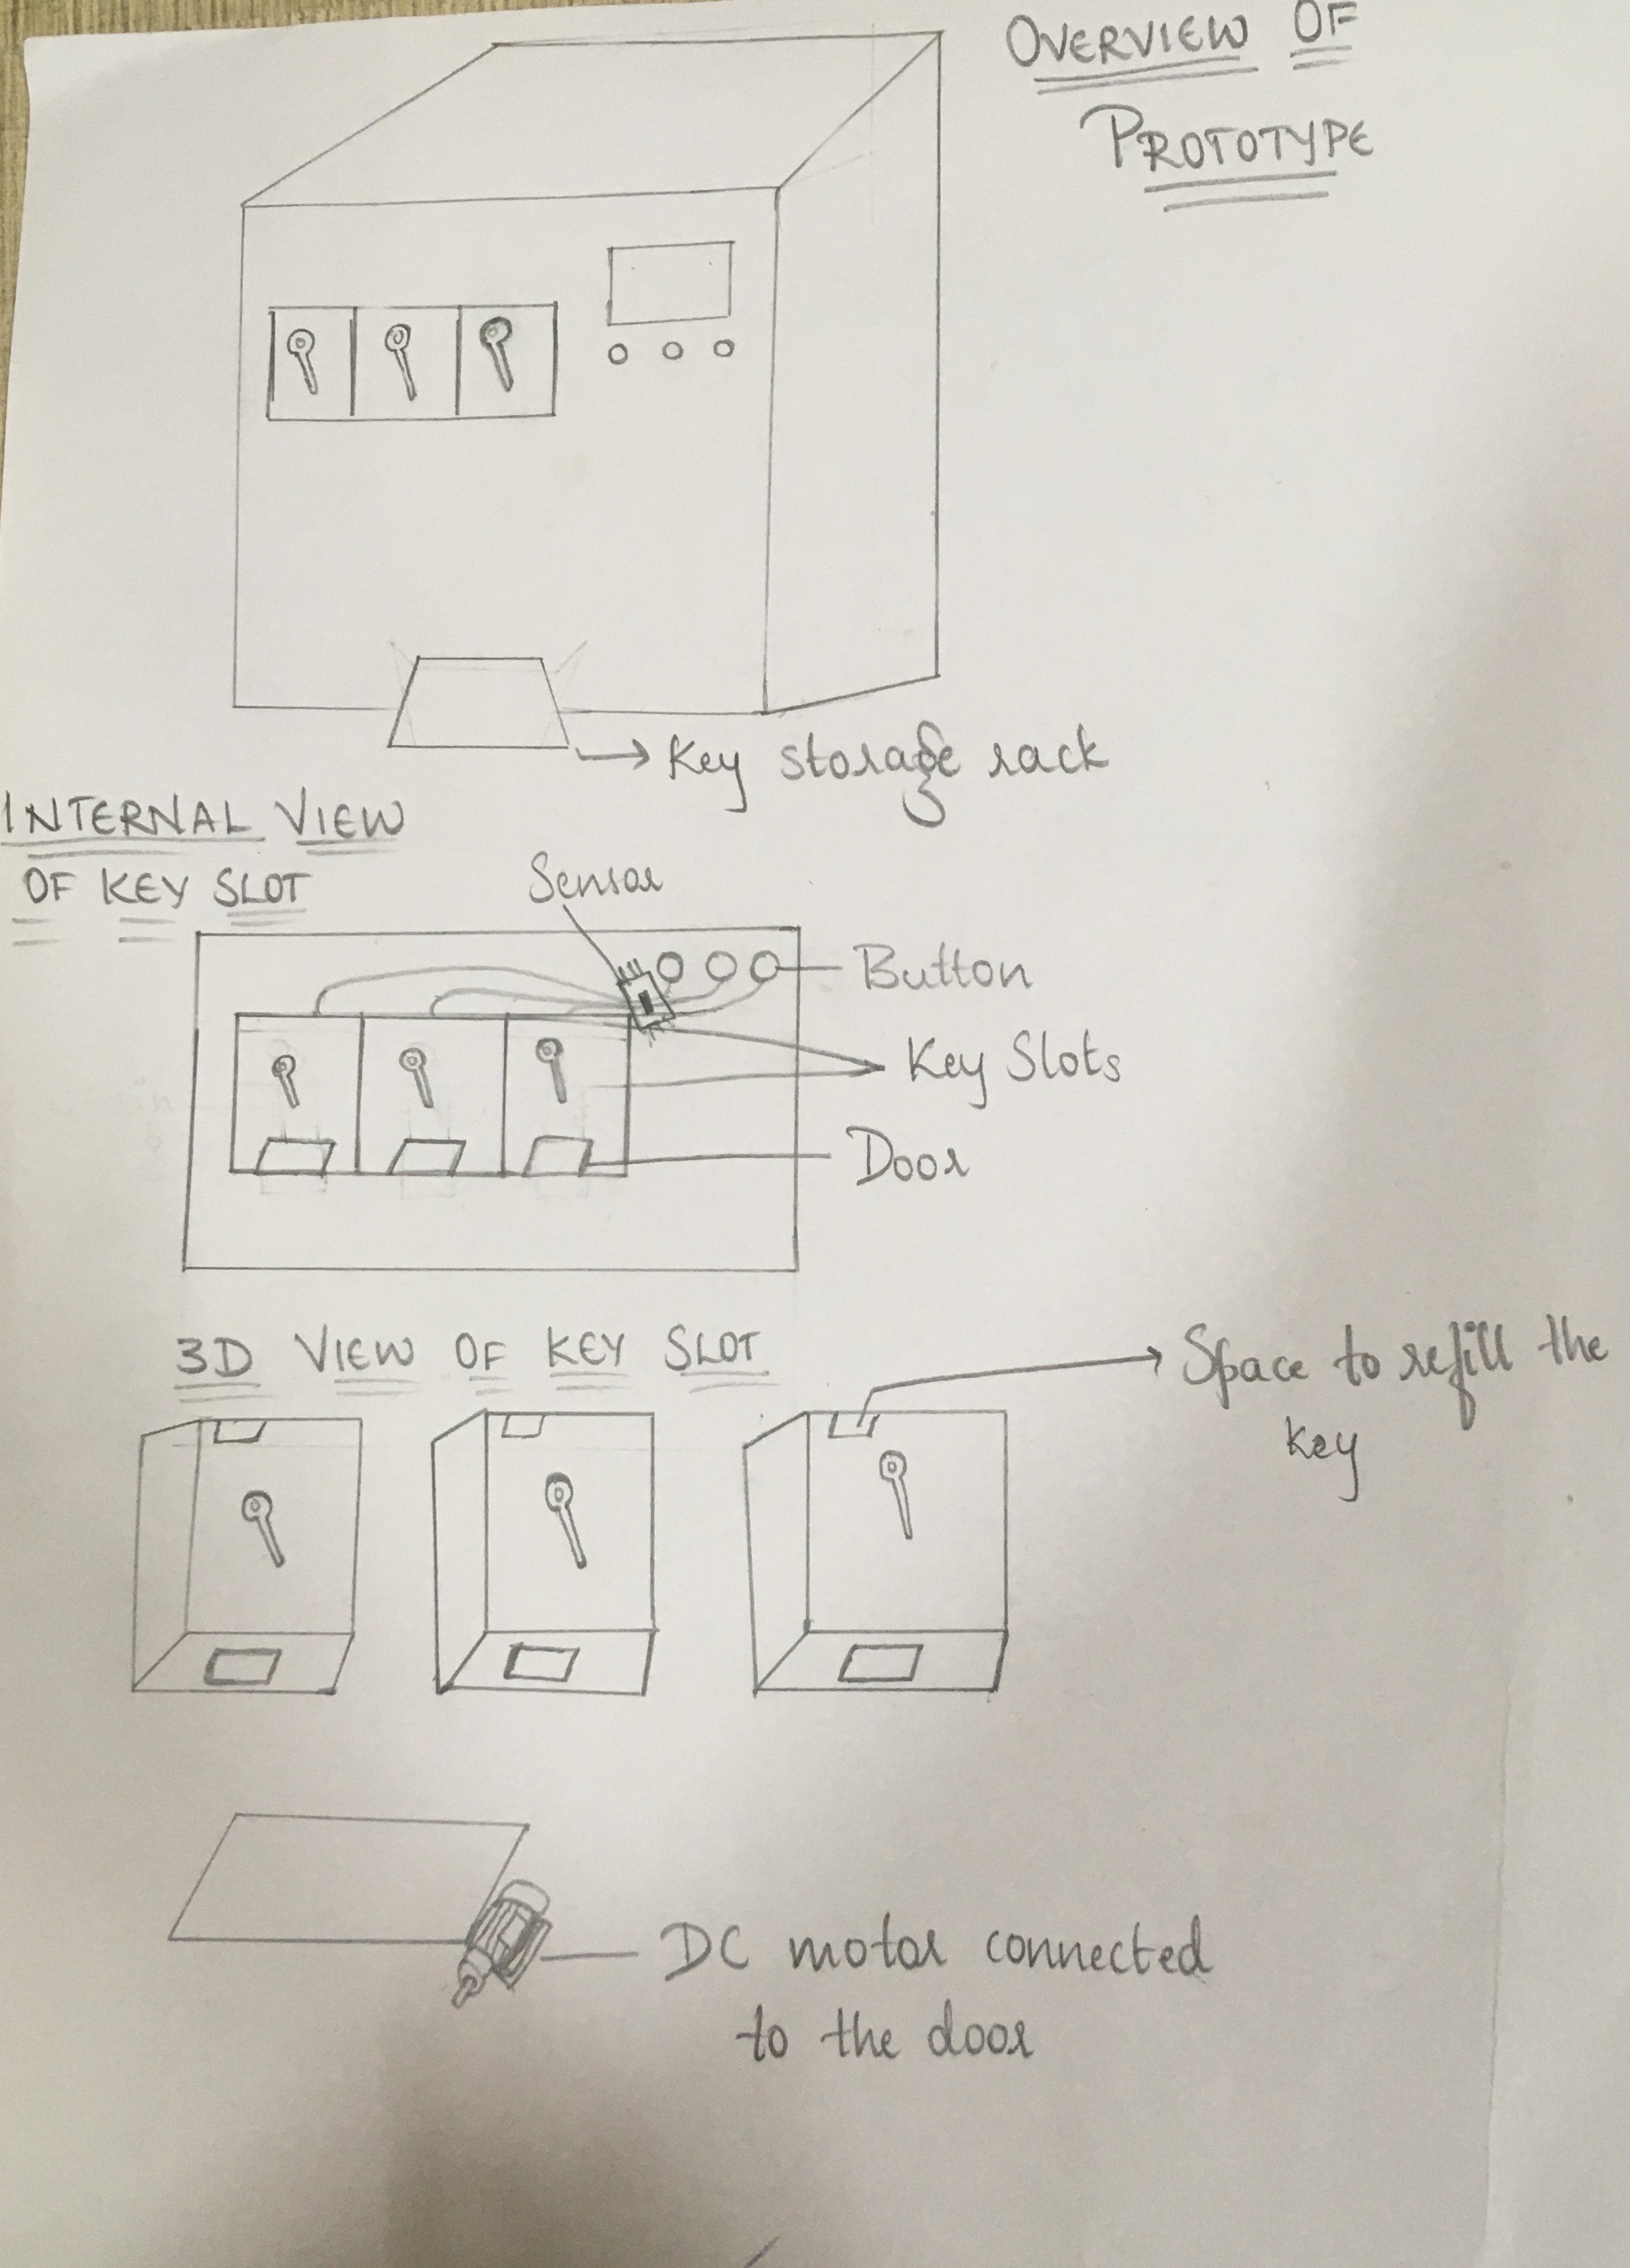 OVERVIEW OF
PROTOTYPE
Key storage rack
INTERNAL VIEW
OF KEY SLOT
Sensor
Button
Key Slots
Door
3D VIEW OF KEY SLOT
Space to refill the
key
DC motor connected
to the door